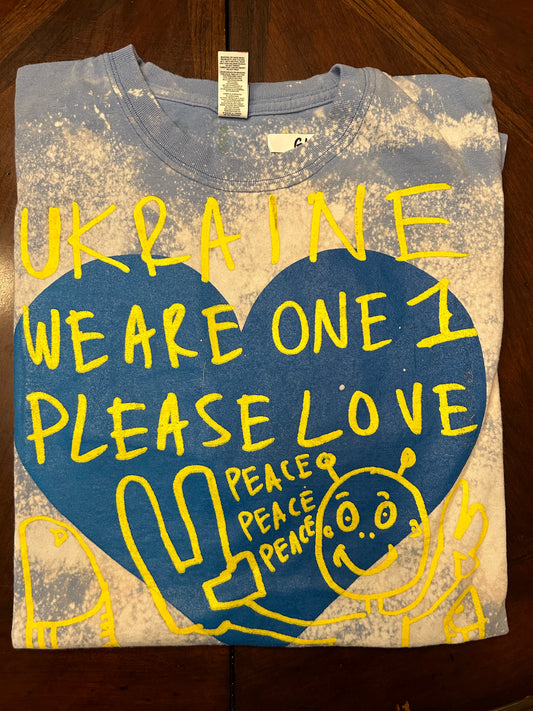 UKRAINE
WE ARE ONE 1
PLEASE LOVE
PEACE
PEACE
PEACE